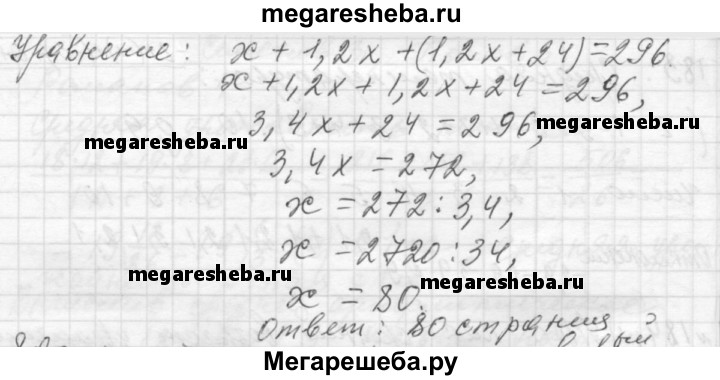 megaresheba.ru
Уравнение: x + 1,2x + (1,2x + 24) = 296
x + 1,2x + 1,2x + 24 = 296,
megaresheba.ru
3,4x + 24 = 296,
megaresheba.ru
3,4x = 272,
x = 272 : 3,4,
x = 2720 : 34,
megaresheba.ru
megaresheba.ru
x = 80.
Ответ: 80 страниц
Мегарешеба.ру